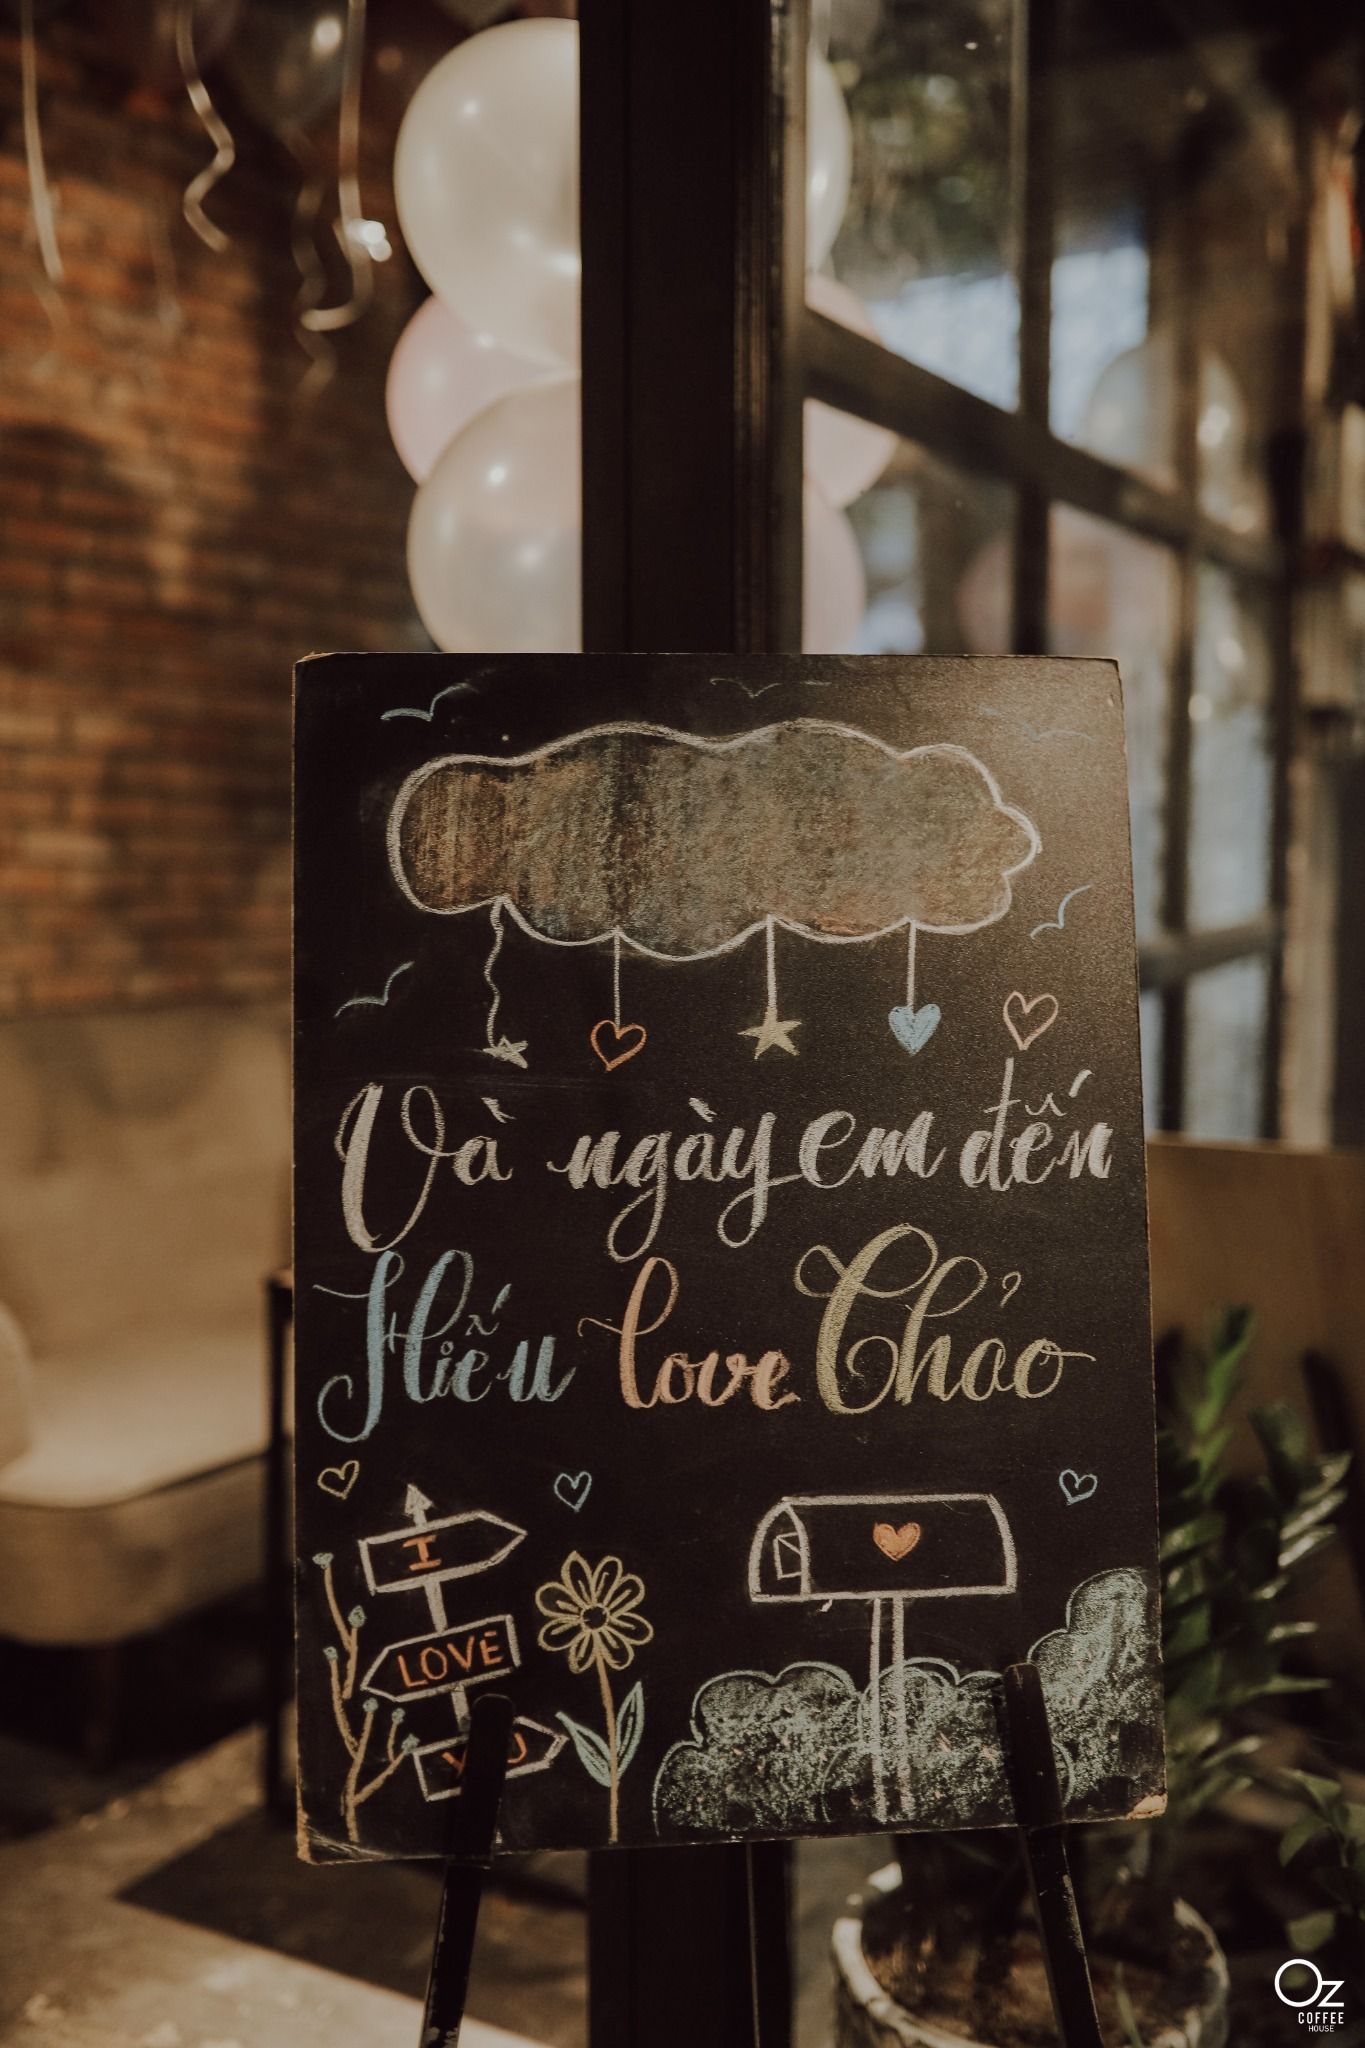 Và ngày em đến
Hiếu love Chảo
I
LOVE
Oz
COFFEE
HOUSE